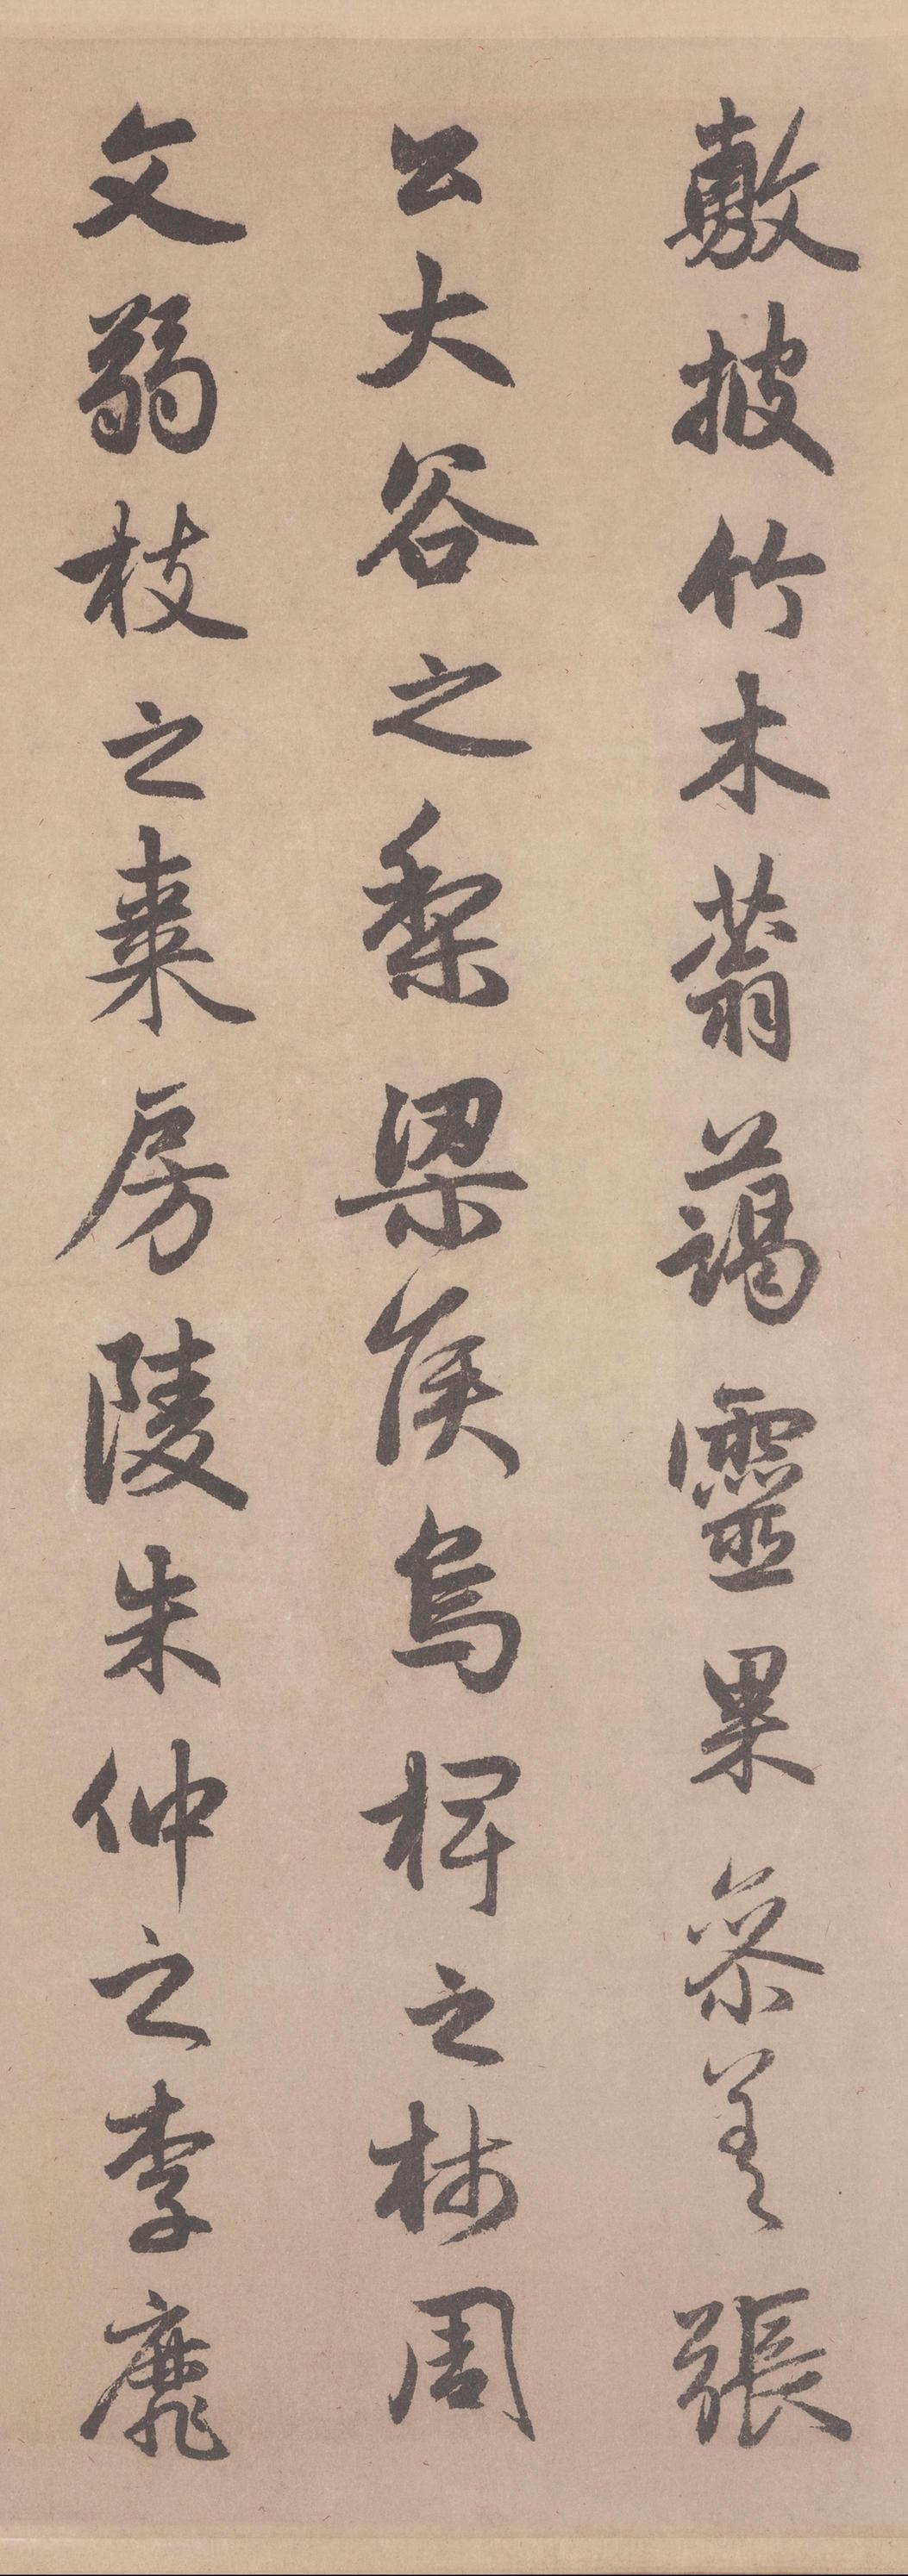 敷披竹木蓊藹靈果參差張
公大谷之梨梁侯烏椑之柿周
文弱枝之棗房陵朱仲之李靡